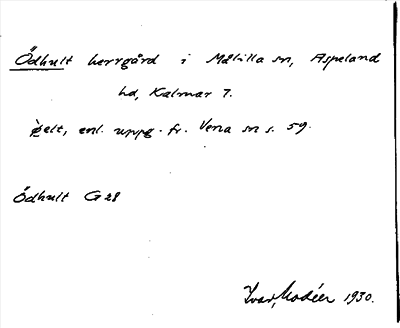 Ödhult herrgård i Målilla sn, Aspeland
hd, Kalmar l.
enl. uppg. fr. Vena sn s. 59.
Ödhult G 28
Ivar Modéer 1930.